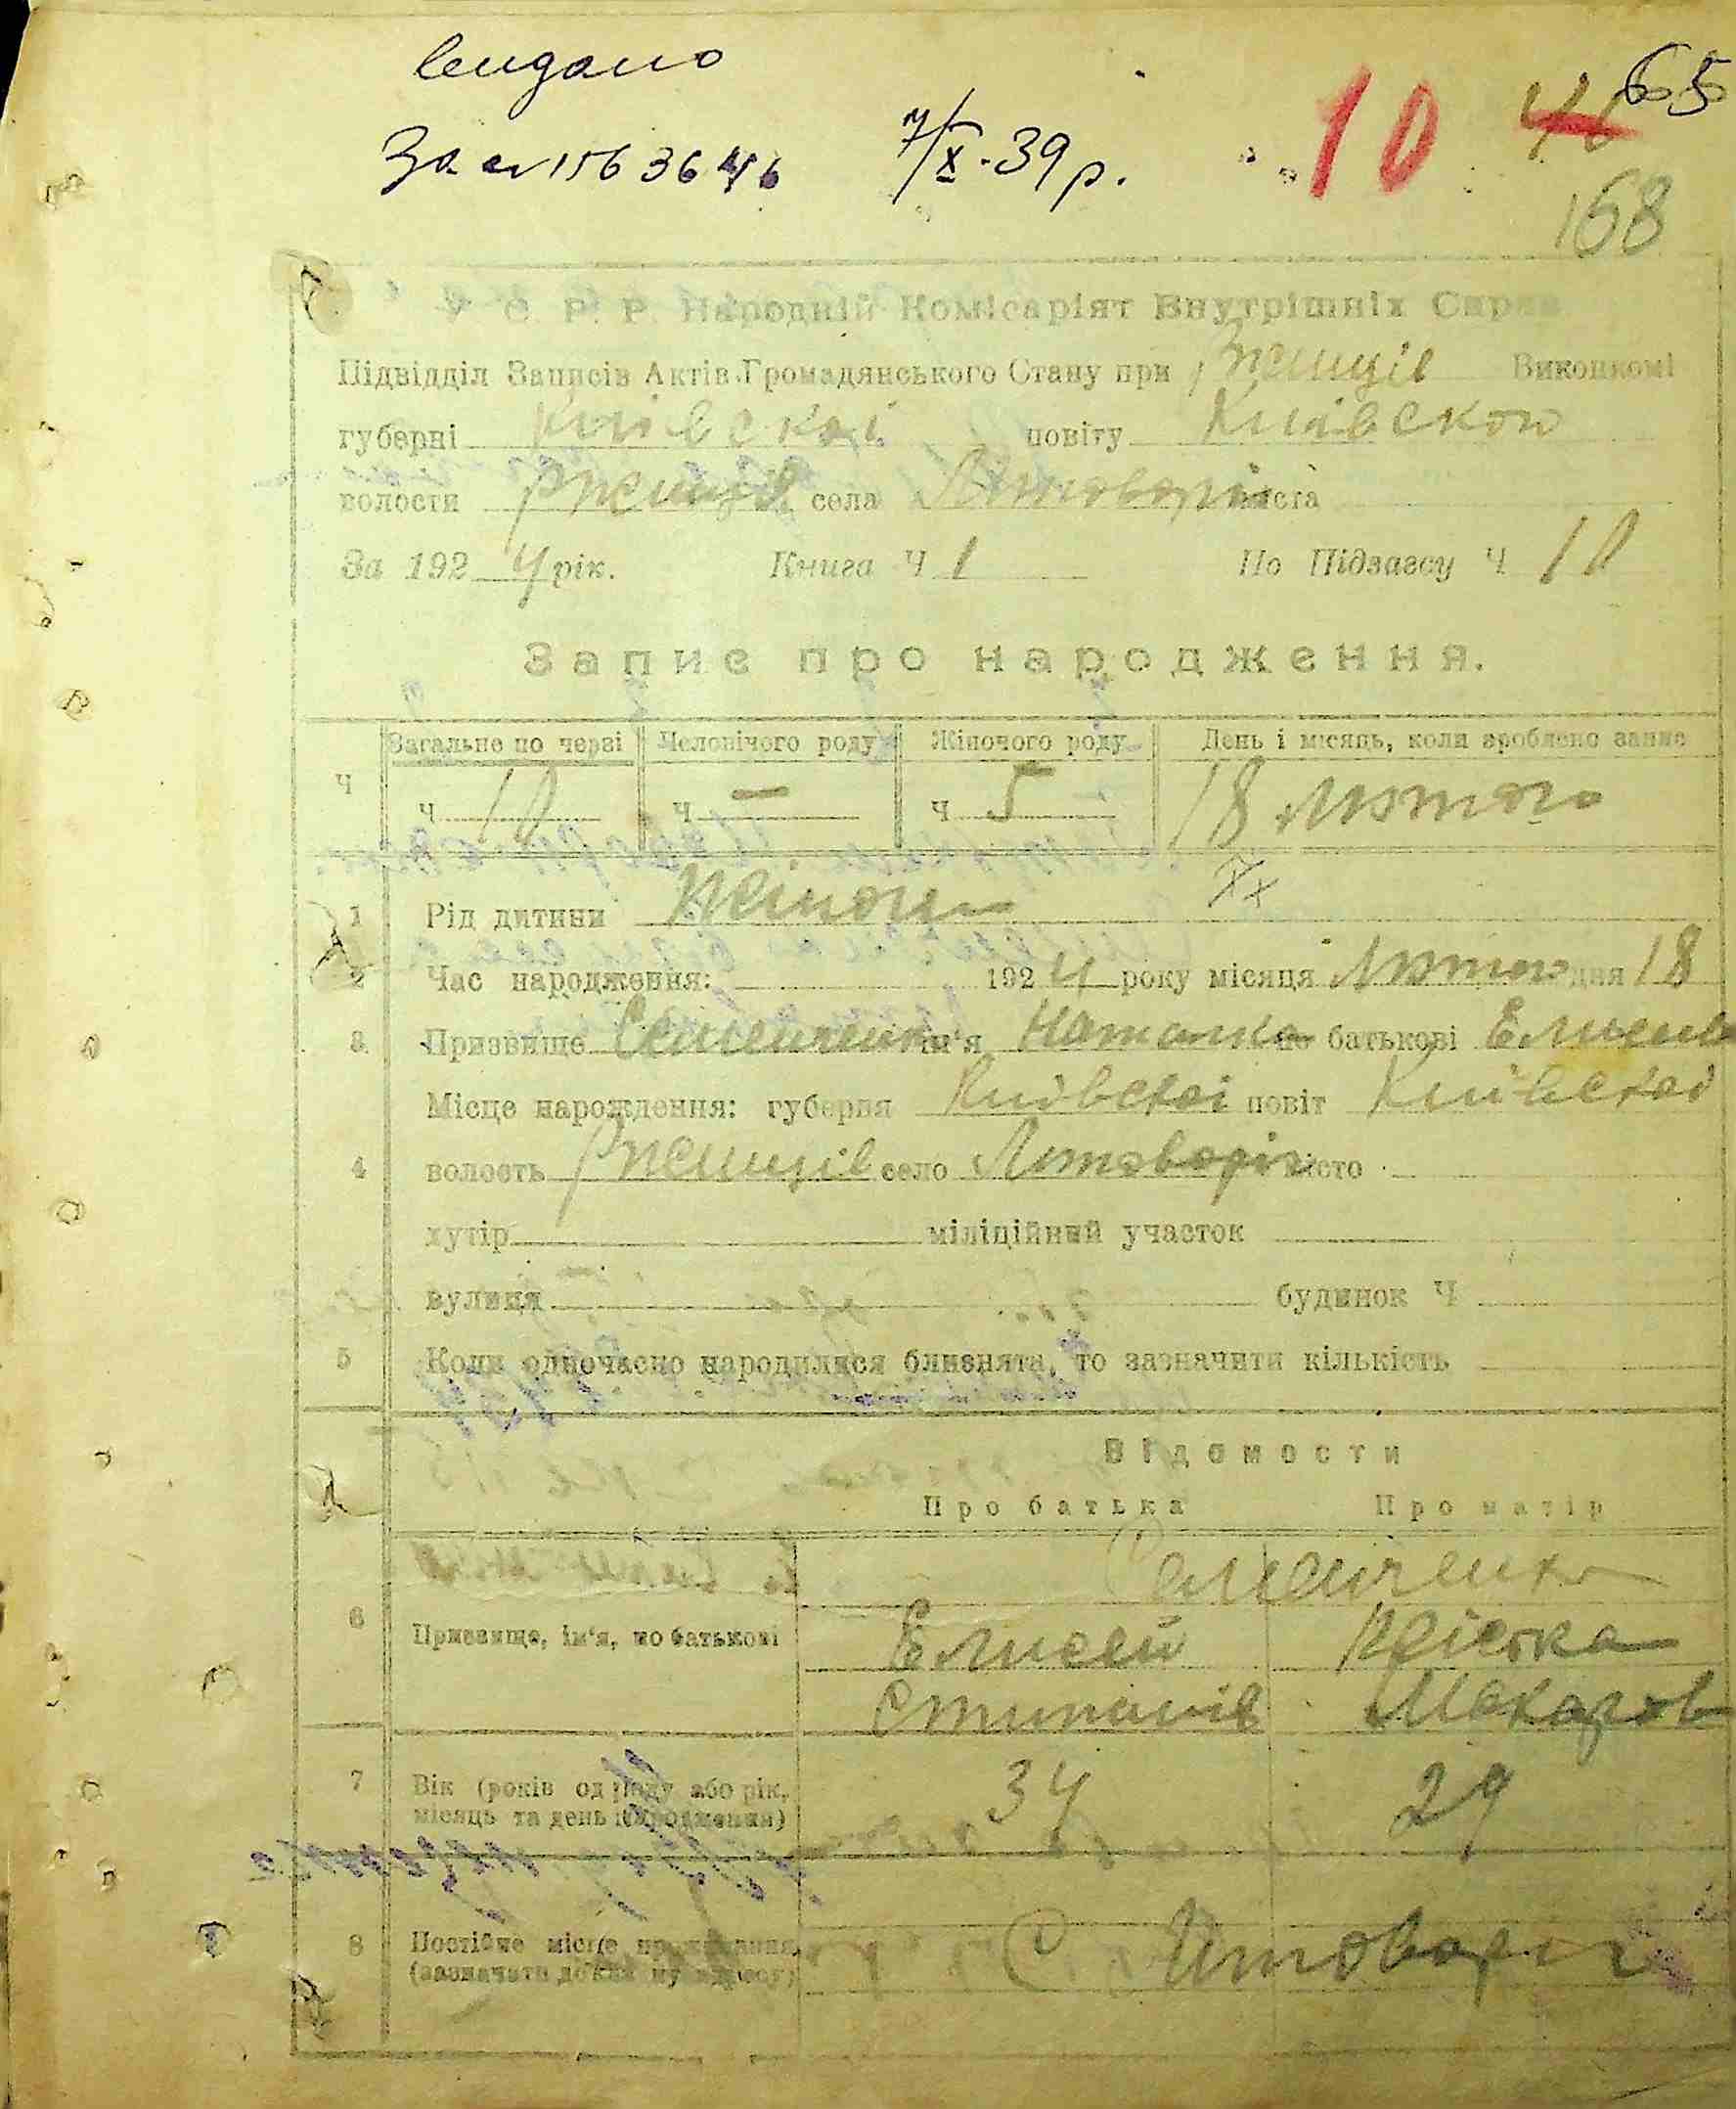 видано
За № 1563646 7/X-39 р. 10 41 65
168
У. С. Р. Р. Народній Комісаріят Внутрішніх Справ
Підвідділ Записів Актів Громадянського Стану при Ржищів Виконкомі
губерні Київскоі повіту Київского
волости Ржищів села місга
За 192 4 рік. Книга Ч 1 По Підзагсу Ч 10
Запис про народження.
Загальне по черзі Чоловічого роду Жіночого роду День і місяць, коли зроблено запис
Ч ч 10 ч — ч 5 18 Лютого
1 Рід дитини Жіночи
2 Час народження: 192 4 року місяця Лютого дня 18
3 Призвище Семенченко ім'я Наталка по батькові Елисеев
Місце нарождення: губерня Київскоі повіт Київскоі
4 волость Ржищів село місто
хутір міліційний участок
вулиця будинок Ч
5 Коли одночасно народилися близнята, то зазначити кількість
Відомости
Про батька Про матір
Семенченко
6 Призвище, ім'я, по батькові Елисей
Стипанів Макаров
7 Вік (років од роду або рік, місяць та день народження) 34 29
8 Постійне місце проживання (зазначити докладну адресу) С